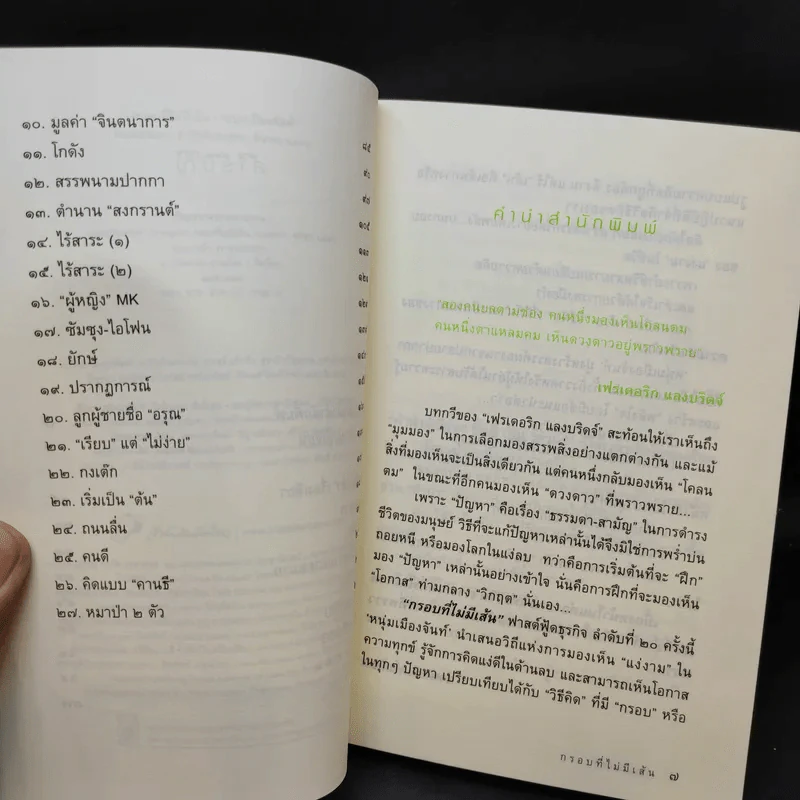 ๑๐. มูลค่า “จินตนาการ”
๑๑. โกดัง
๑๒. สรรพนามปากกา
๑๓. ตำนาน “สงกรานต์”
๑๔. ไร้สาระ (๑)
๑๕. ไร้สาระ (๒)
๑๖. “ผู้หญิง” MK
๑๗. ซัมซุง-ไอโฟน
๑๘. ยักษ์
๑๙. ปรากฏการณ์
๒๐. ลูกผู้ชายชื่อ “อรุณ”
๒๑. “เรียบ” แต่ “ไม่ง่าย”
๒๒. กงเต๊ก
๒๓. เริ่มเป็น “ต้น”
๒๔. ถนนลื่น
๒๕. คนดี
๒๖. คิดแบบ “คานธี”
๒๗. หมาป่า ๒ ตัว
๘๕
๙๐
๙๗
๑๐๕
๑๑๓
คำนำสำนักพิมพ์
“สองคนยลตามช่อง คนหนึ่งมองเห็นโคลนตม
คนหนึ่งตาแหลมคม เห็นดวงดาวอยู่พราวพราย
เฟรเดอริก แลงบริดจ์
บทกวีของ “เฟรเดอริก แลงบริดจ์” สะท้อนให้เราเห็นถึง
“มุมมอง” ในการเลือกมองสรรพสิ่งอย่างแตกต่างกัน และแม้
สิ่งที่มองเห็นจะเป็นสิ่งเดียวกัน แต่คนหนึ่งกลับมองเห็น “โคลน
ตม” ในขณะที่อีกคนมองเห็น “ดวงดาว” ที่พราวพราย...
เพราะ “ปัญหา” คือเรื่อง “ธรรมดา-สามัญ” ในการดำรง
ชีวิตของมนุษย์ วิธีที่จะแก้ปัญหาเหล่านั้นได้จึงมิใช่การพร่ำบ่น
ถอยหนี หรือมองโลกในแง่ลบ ทว่าคือการเริ่มต้นที่จะ “ฝึก”
มอง “ปัญหา” เหล่านั้นอย่างเข้าใจ นั่นคือการฝึกที่จะมองเห็น
“โอกาส” ท่ามกลาง “วิกฤต” นั่นเอง...
“กรอบที่ไม่มีเส้น” ฟาสต์ฟู้ดธุรกิจ ลำดับที่ ๒๐ ครั้งนี้
‘หนุ่มเมืองจันท์’ นำเสนอวิถีแห่งการมองเห็น “แง่งาม” ใน
ความทุกข์ รู้จักการคิดแง่ดีในด้านลบ และสามารถเห็นโอกาส
ในทุกๆ ปัญหา เปรียบเทียบได้กับ “วิธีคิด” ที่มี “กรอบ” หรือ
กรอบที่ไม่มีเส้น ๗